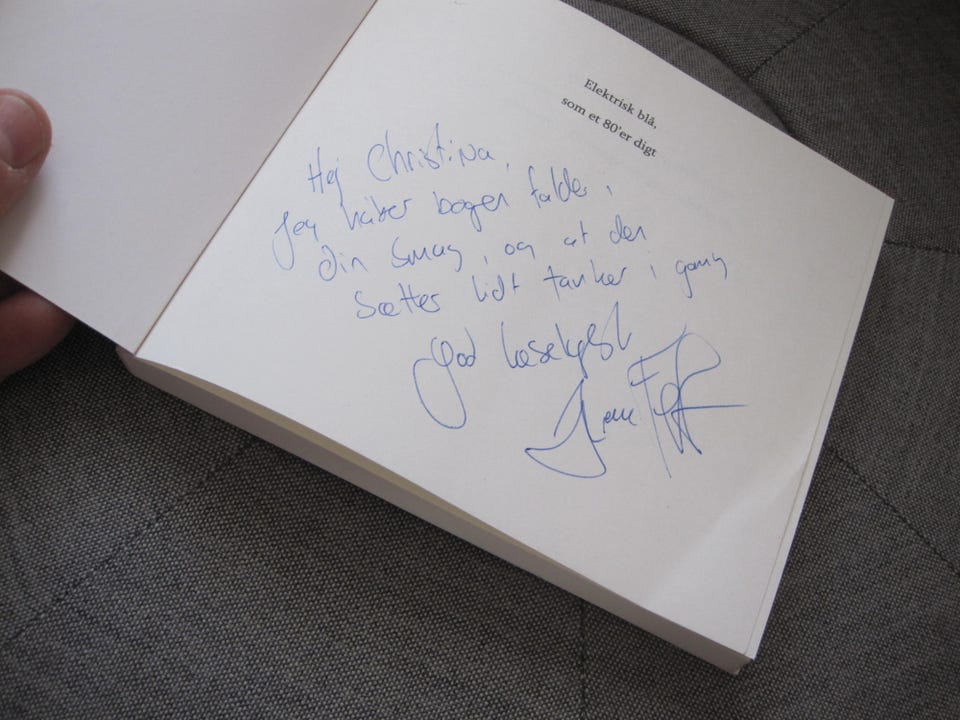 Elektrisk blå,
som et 80'er digt
Hej Christina,
Jeg håber bogen falder i
din smag, og at den
sætter lidt tanker i gang
God læselyst